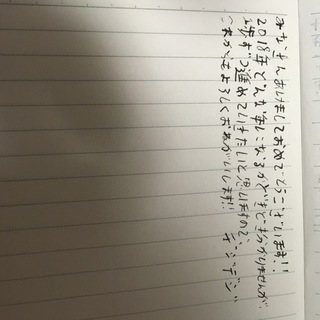 みなさんあけましておめでとうございます!!
2018年どんな年になるかどきどき分かりませんが、
歩ずつ進めていけたいと思いますので、
これからもよろしくおねがいします!!